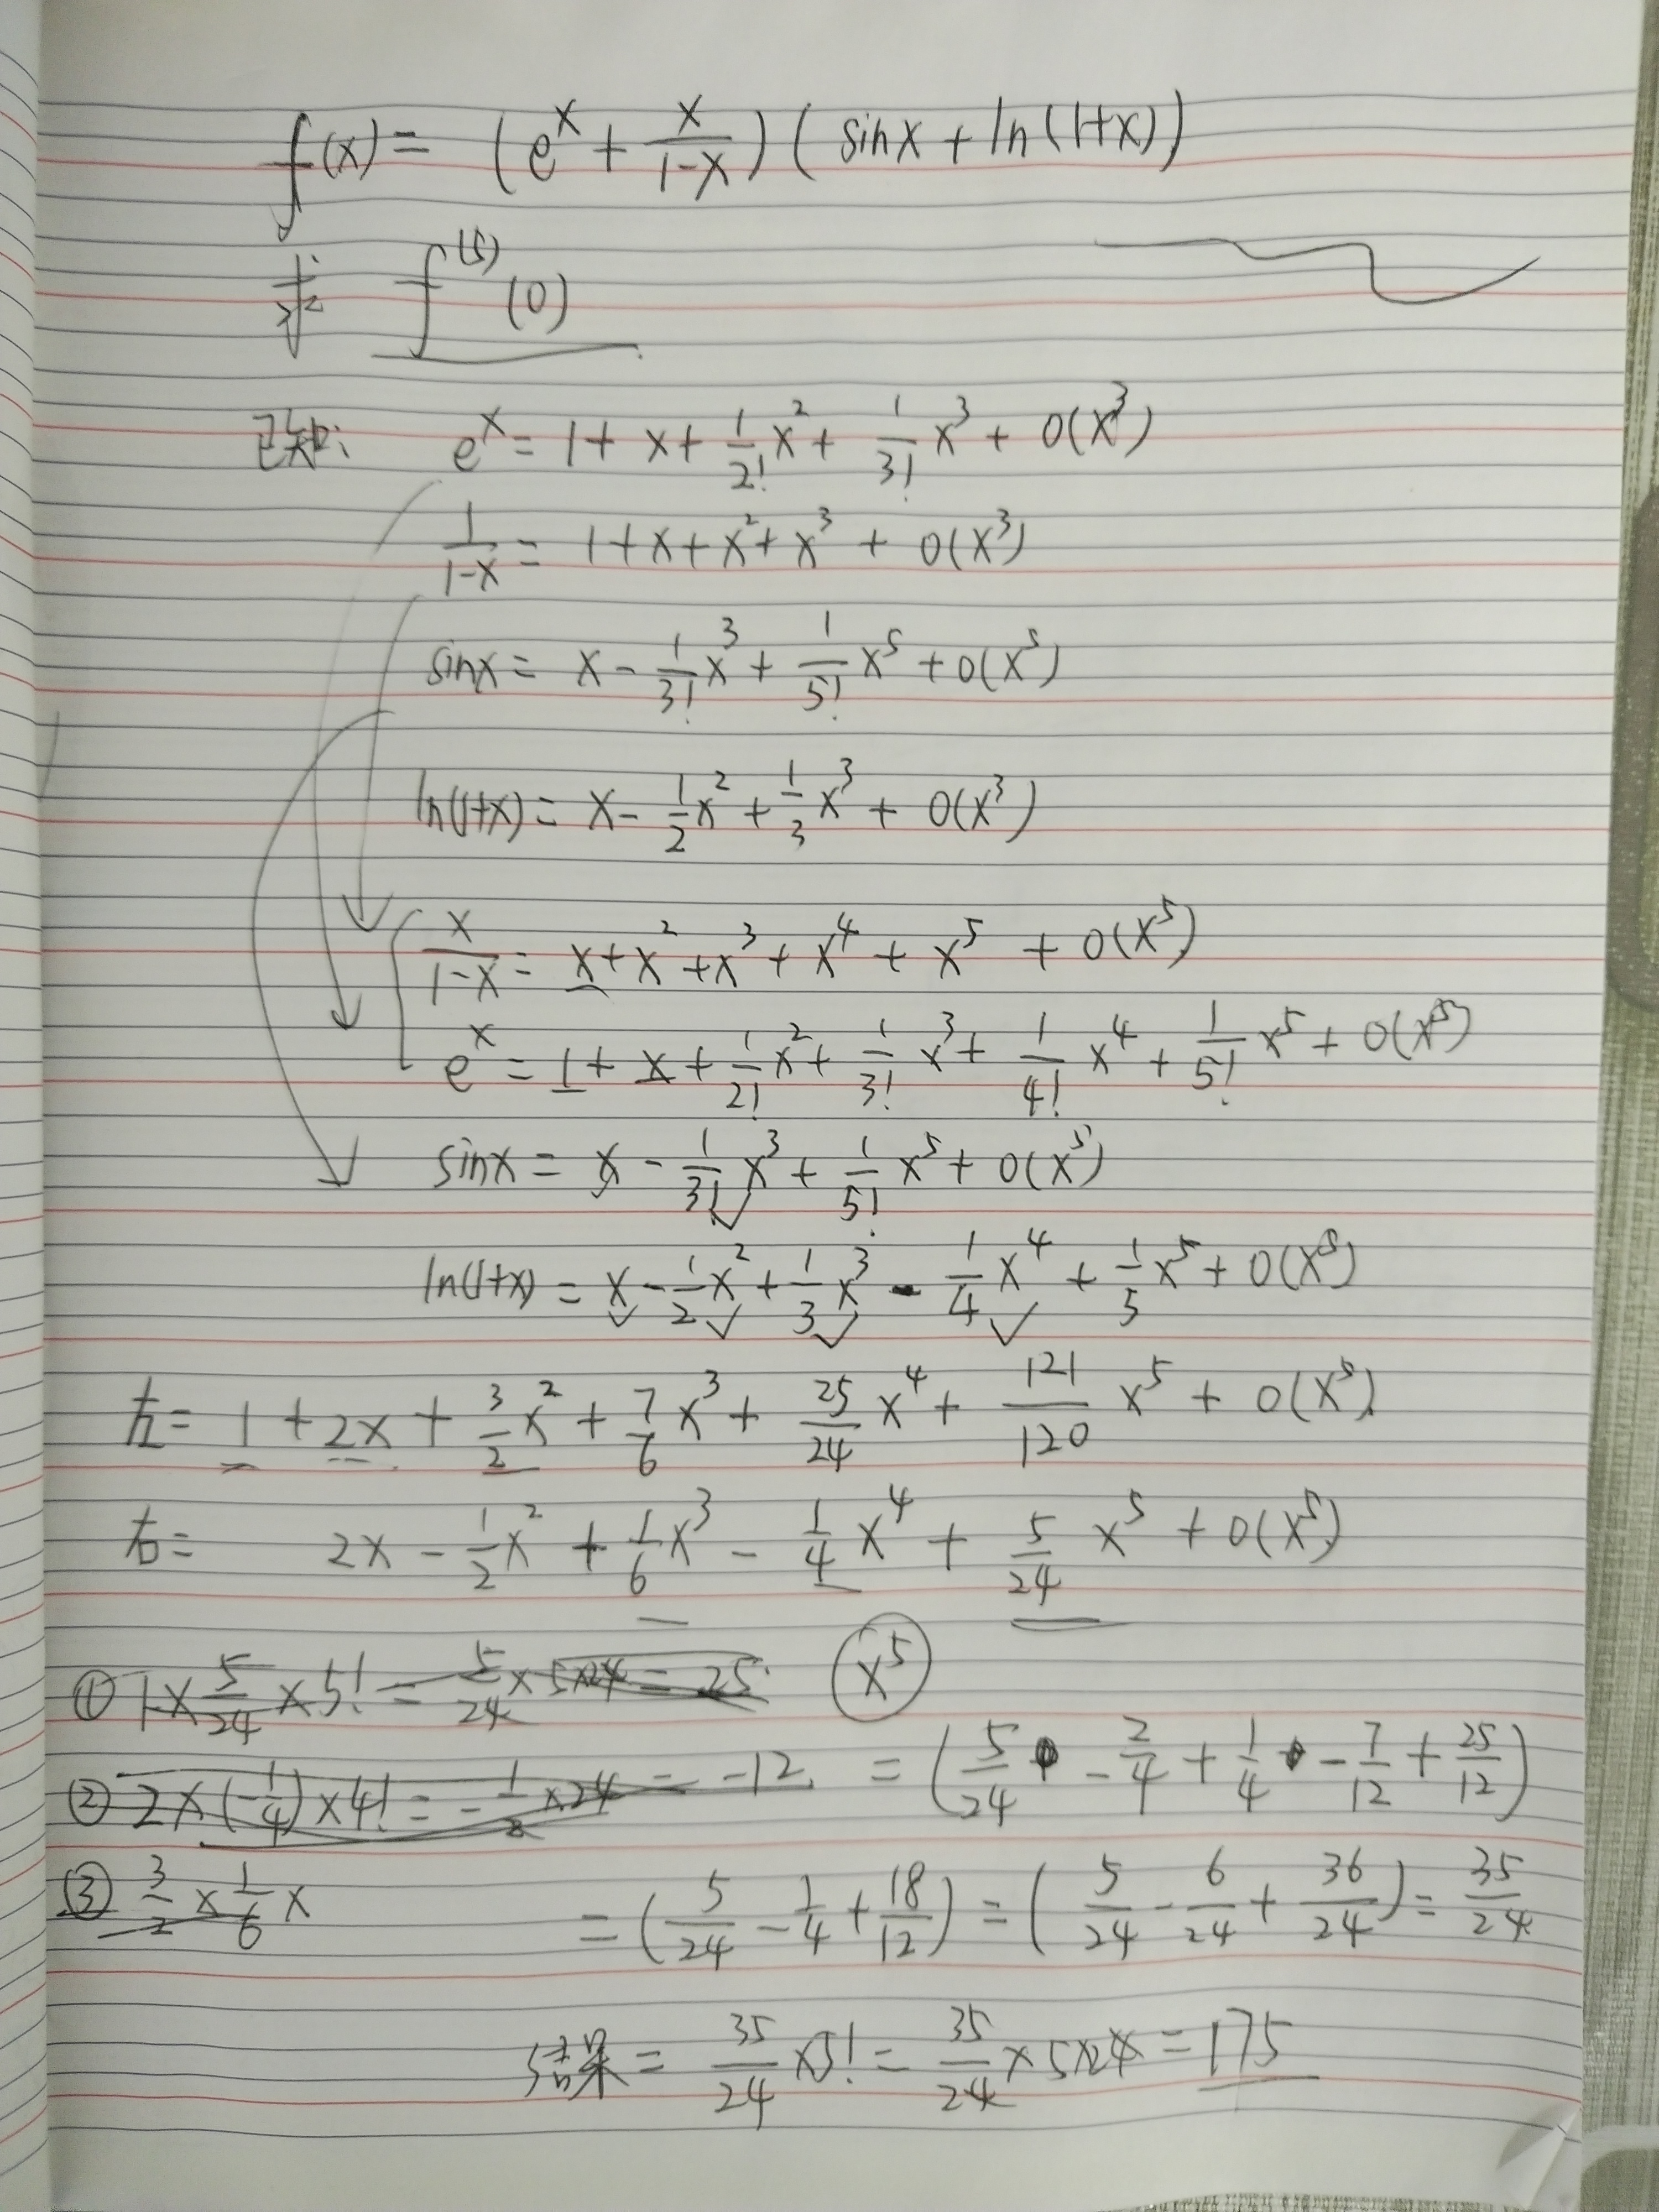 f(x) = (e^x + x/(1-x)) ( sinx + ln(1+x))
求 f^(5)(0)
已知: e^x = 1 + x + 1/2! x^2 + 1/3! x^3 + o(x^3)
1/(1-x) = 1+x+x^2+x^3 + o(x^3)
sinx = x - 1/3! x^3 + 1/5! x^5 + o(x^5)
ln(1+x) = x - 1/2 x^2 + 1/3 x^3 + o(x^3)
x/(1-x) = x+x^2+x^3+x^4+x^5 + o(x^5)
e^x = 1 + x + 1/2! x^2 + 1/3! x^3 + 1/4! x^4 + 1/5! x^5 + o(x^5)
sinx = x - 1/3! x^3 + 1/5! x^5 + o(x^5)
ln(1+x) = x - 1/2 x^2 + 1/3 x^3 - 1/4 x^4 + 1/5 x^5 + o(x^5)
左 = 1 + 2x + 3/2 x^2 + 7/6 x^3 + 25/24 x^4 + 121/120 x^5 + o(x^5)
右 = 2x - 1/2 x^2 + 1/6 x^3 - 1/4 x^4 + 5/24 x^5 + o(x^5)
① 1 × 5/24 × 5! = 5/24 × 5×24 = 25 x^5
② 2 × (-1/4) × 4! = -1/2 × 24 = -12 = (5/24 - 2/4 + 1/4 - 7/12 + 25/12)
③ 3/2 × 1/6 × = (5/24 - 1/4 + 18/12) = (5/24 - 6/24 + 36/24) = 35/24
结果 = 35/24 × 5! = 35/24 × 5×24 = 175